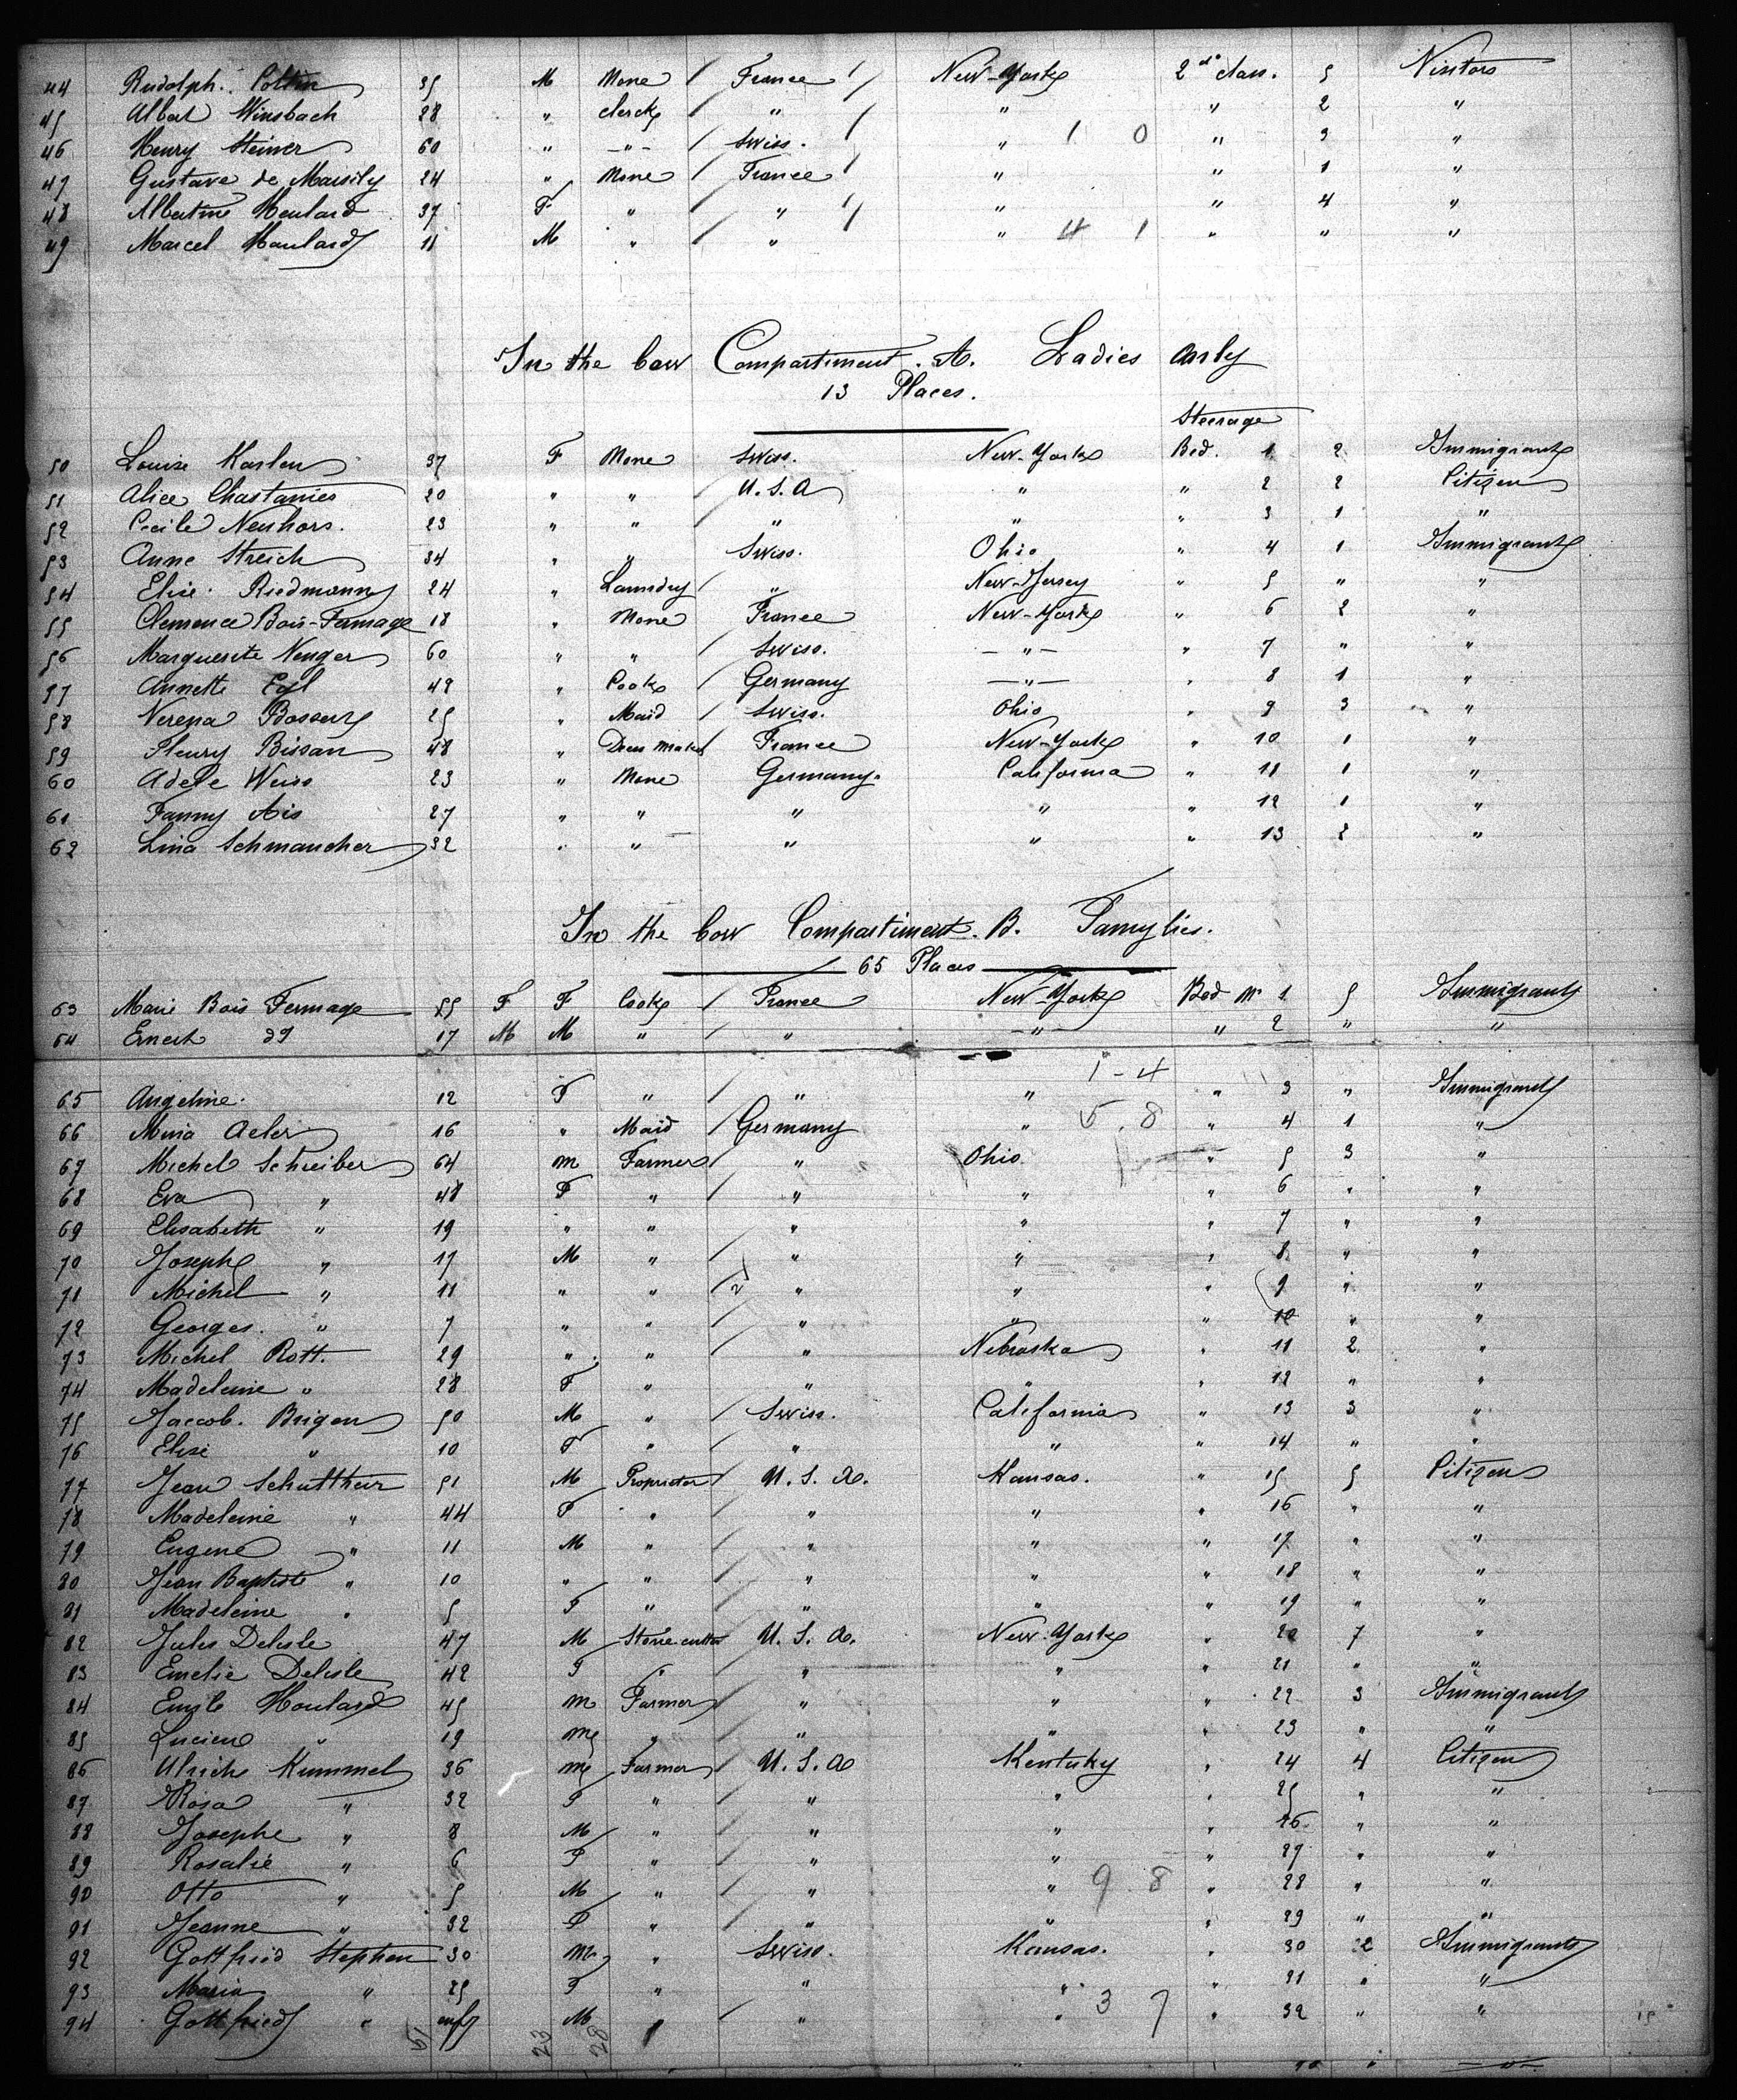 44 Rudolph. Cottin 35 M None / France 1/ New-York 2nd class. 5 Visitors
45 Albert Winsbach 28 " clerck / " / " " 2 "
46 Henry Steiner 60 " -"- / Swiss. " 1 0 " 3 "
47 Gustave de Marsily 24 " None / France / " " 1 "
48 Albertine Houlard 37 F " / " 1/ " " 4 "
49 Marcel Houlard 11 M " / " " 4 1 " " "
In the bow Compartiment. A. Ladies Only
13 Places.
Steerage
50 Louise Karlen 37 F None / Swiss. New-York Bed. 1 2 Immigrant
51 Alice Chastanies 20 " " / U.S.A " " 2 2 Citizen
52 Cecile Neuhors. 23 " " / " " " 3 1 "
53 Anne Streich 34 " " Swiss. Ohio " 4 1 Immigrant
54 Elise. Riedmann 24 " Laundry / " New-Jersey " 5 " "
55 Clemence Bois-Fermage 18 " None France New-York " 6 2 "
56 Marguerite Nenger 60 " " / Swiss. -"- " 7 " "
57 Annette Egl 42 " Cook / Germany -"- " 8 1 "
58 Verena Bossery 25 " Maid / Swiss. Ohio " 9 3 "
59 Fleury Bissan 48 " Dress maker France New-York " 10 1 "
60 Adele Weiss 23 " None Germany. California " 11 1 "
61 Fanny Ais 27 " " " " " 12 1 "
62 Lina Schmaucher 32 " " " " " 13 2 "
In the bow Compartiment. B. Famylies.
65 Places
63 Marie Bois Fermage 55 F F Cook / France New-York Bed No 1 5 Immigrant
64 Ernest do 17 M M " / " -"- " 2 " "
1-4
65 Angeline. 12 F " / " " " 3 " Immigrant
66 Mina Acler 16 " Maid / Germany " 5.8 " 4 1 "
67 Michel Schreiber 64 m Farmer / " Ohio " 5 3 "
68 Eva " 48 F " / " " " 6 " "
69 Elisabeth " 19 " " " " " 7 " "
70 Joseph " 17 M " / " " " 8 " "
71 Michel " 11 " " / 2 " " " 9 " "
72 Georges. " 7 " " " " " 10 " "
73 Michel Rott. 29 " " / " Nebraska " 11 2 "
74 Madeleine " 28 F " " " " 12 " "
75 Jaccob. Brigen 50 M " / Swiss. California " 13 3 "
76 Elise " 10 F " / " " " 14 " "
77 Jean Schultheir 51 M Proprietor / U.S.A. Kansas. " 15 5 Citizen
78 Madeleine " 44 F " " " " 16 " "
79 Eugene " 11 M " / " " " 17 " "
80 Jean Baptiste " 10 " " / " " " 18 " "
81 Madeleine " 5 F " / " " " 19 " "
82 Jules Delisle 47 M Stone cutter U.S.A. New-York " 20 7 "
83 Emelie Delisle 42 F " / " " " 21 " "
84 Emile Houlard 45 m Farmer " " " 22 3 Immigrant
85 Lucien " 19 m " / " " " 23 " "
86 Ulrich Kummel 36 m Farmer / U.S.A Kentuky " 24 4 Citizen
87 Rosa " 32 F " / " " " 25 " "
88 Josephe " 8 M " / " " " 26 " "
89 Rosalie " 6 F " / " " " 27 " "
90 Otto " 5 M " / " " 9 8 " 28 " "
91 Jeanne " 32 F " / " " " 29 " "
92 Gottfried Stephen 30 m " Swiss. Kansas. " 30 2 Immigrant
93 Maria " 25 F " " " " 31 " "
94 Gottfried " M " / " " 3 7 " 32 " "
51 23 28